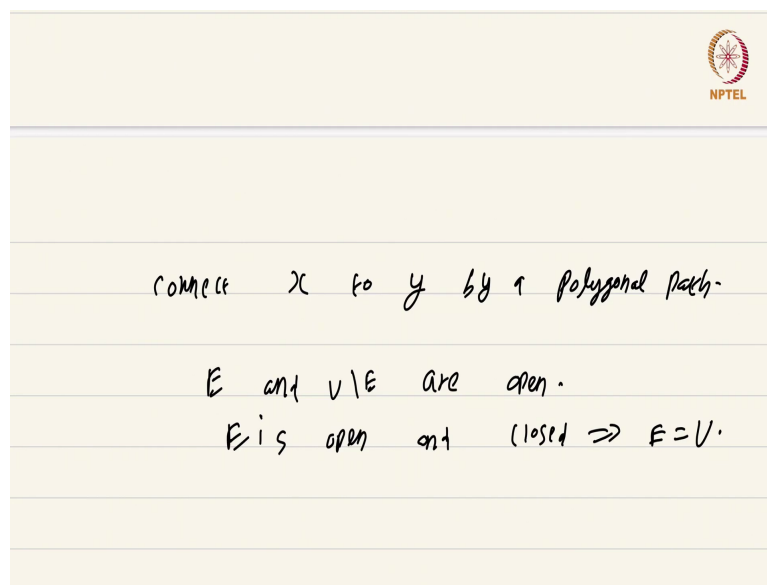 NPTEL
connect x to y by a polygonal path.
E and U\E are open.
E is open and closed ⇒ E = U.